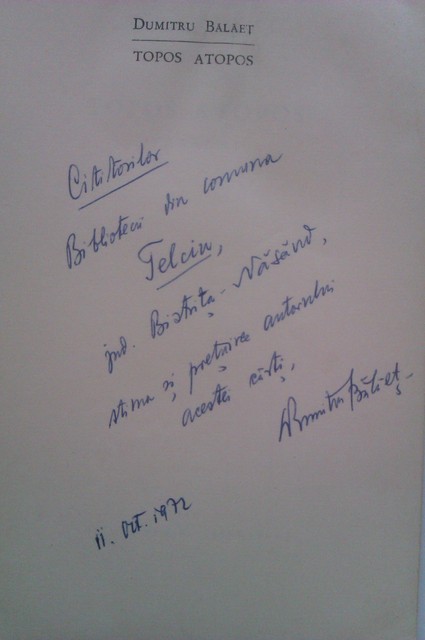 DUMITRU BĂLĂEȚ
TOPOS ATOPOS
Cititorilor
Bibliotecii din comuna
Telciu,
jud. Bistrița-Năsăud,
stima și prețuirea autorului
acestei cărți,
Dumitru Bălăeț
11. Oct. 1972